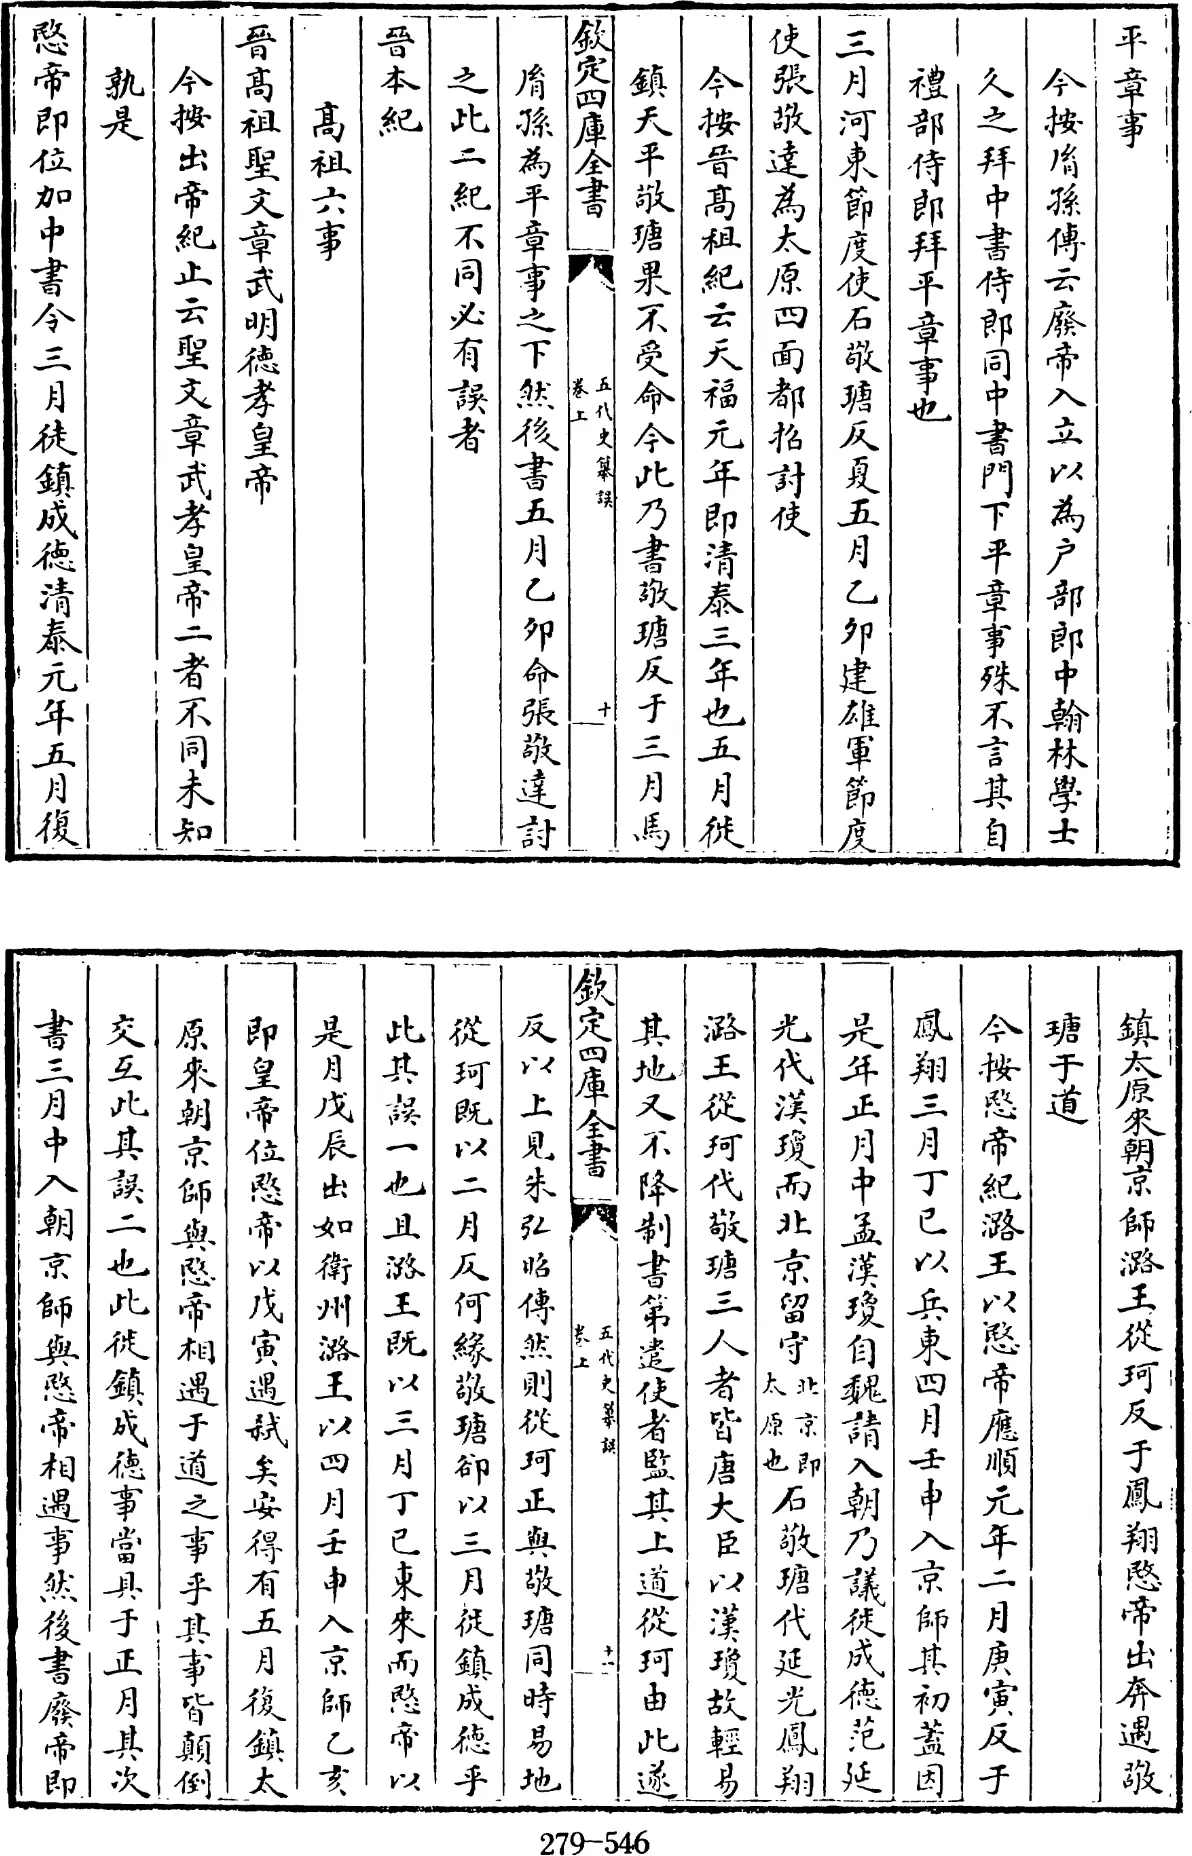 平章事
今按𦙍孫傳云廢帝入立以為户部郎中翰林學士
久之拜中書侍郎同中書門下平章事殊不言其自
禮部侍郎拜平章事也
三月河東節度使石敬瑭反夏五月乙夘建雄軍節度
使張敬達為太原四面都招討使
今按晉髙祖紀云天福元年即清泰三年也五月徙
鎮天平敬瑭果不受命今此乃書敬瑭反于三月馬
欽定四庫全書
五代史纂誤
卷上
十
𦙍孫為平章事之下然後書五月乙夘命張敬達討
之此二紀不同必有誤者
晉本紀
髙祖六事
晉髙祖聖文章武明德孝皇帝
今按出帝紀止云聖文章武孝皇帝二者不同未知
孰是
愍帝即位加中書令三月徙鎮成德清泰元年五月復
鎮太原來朝京師潞王從珂反于鳳翔愍帝出奔遇敬
瑭于道
今按愍帝紀潞王以愍帝應順元年二月庚寅反于
鳳翔三月丁巳以兵東四月壬申入京師其初蓋因
是年正月中孟漢瓊自魏請入朝乃議徙成德范延
光代漢瓊而北京留守北京即太原也石敬瑭代延光鳳翔
潞王從珂代敬瑭三人者皆唐大臣以漢瓊故輕易
其地又不降制書第遣使者監其上道從珂由此遂
欽定四庫全書
五代史纂誤
卷上
十一
反以上見朱弘昭傳然則從珂正與敬瑭同時易地
從珂既以二月反何緣敬瑭卻以三月徙鎮成德乎
此其誤一也且潞王既以三月丁巳東來而愍帝以
是月戊辰出如衛州潞王以四月壬申入京師乙亥
即皇帝位愍帝以戊寅遇弑矣安得有五月復鎮太
原來朝京師與愍帝相遇于道之事乎其事皆顛倒
交互此其誤二也此徙鎮成德事當具于正月其次
書三月中入朝京師與愍帝相遇事然後書廢帝即
279-546